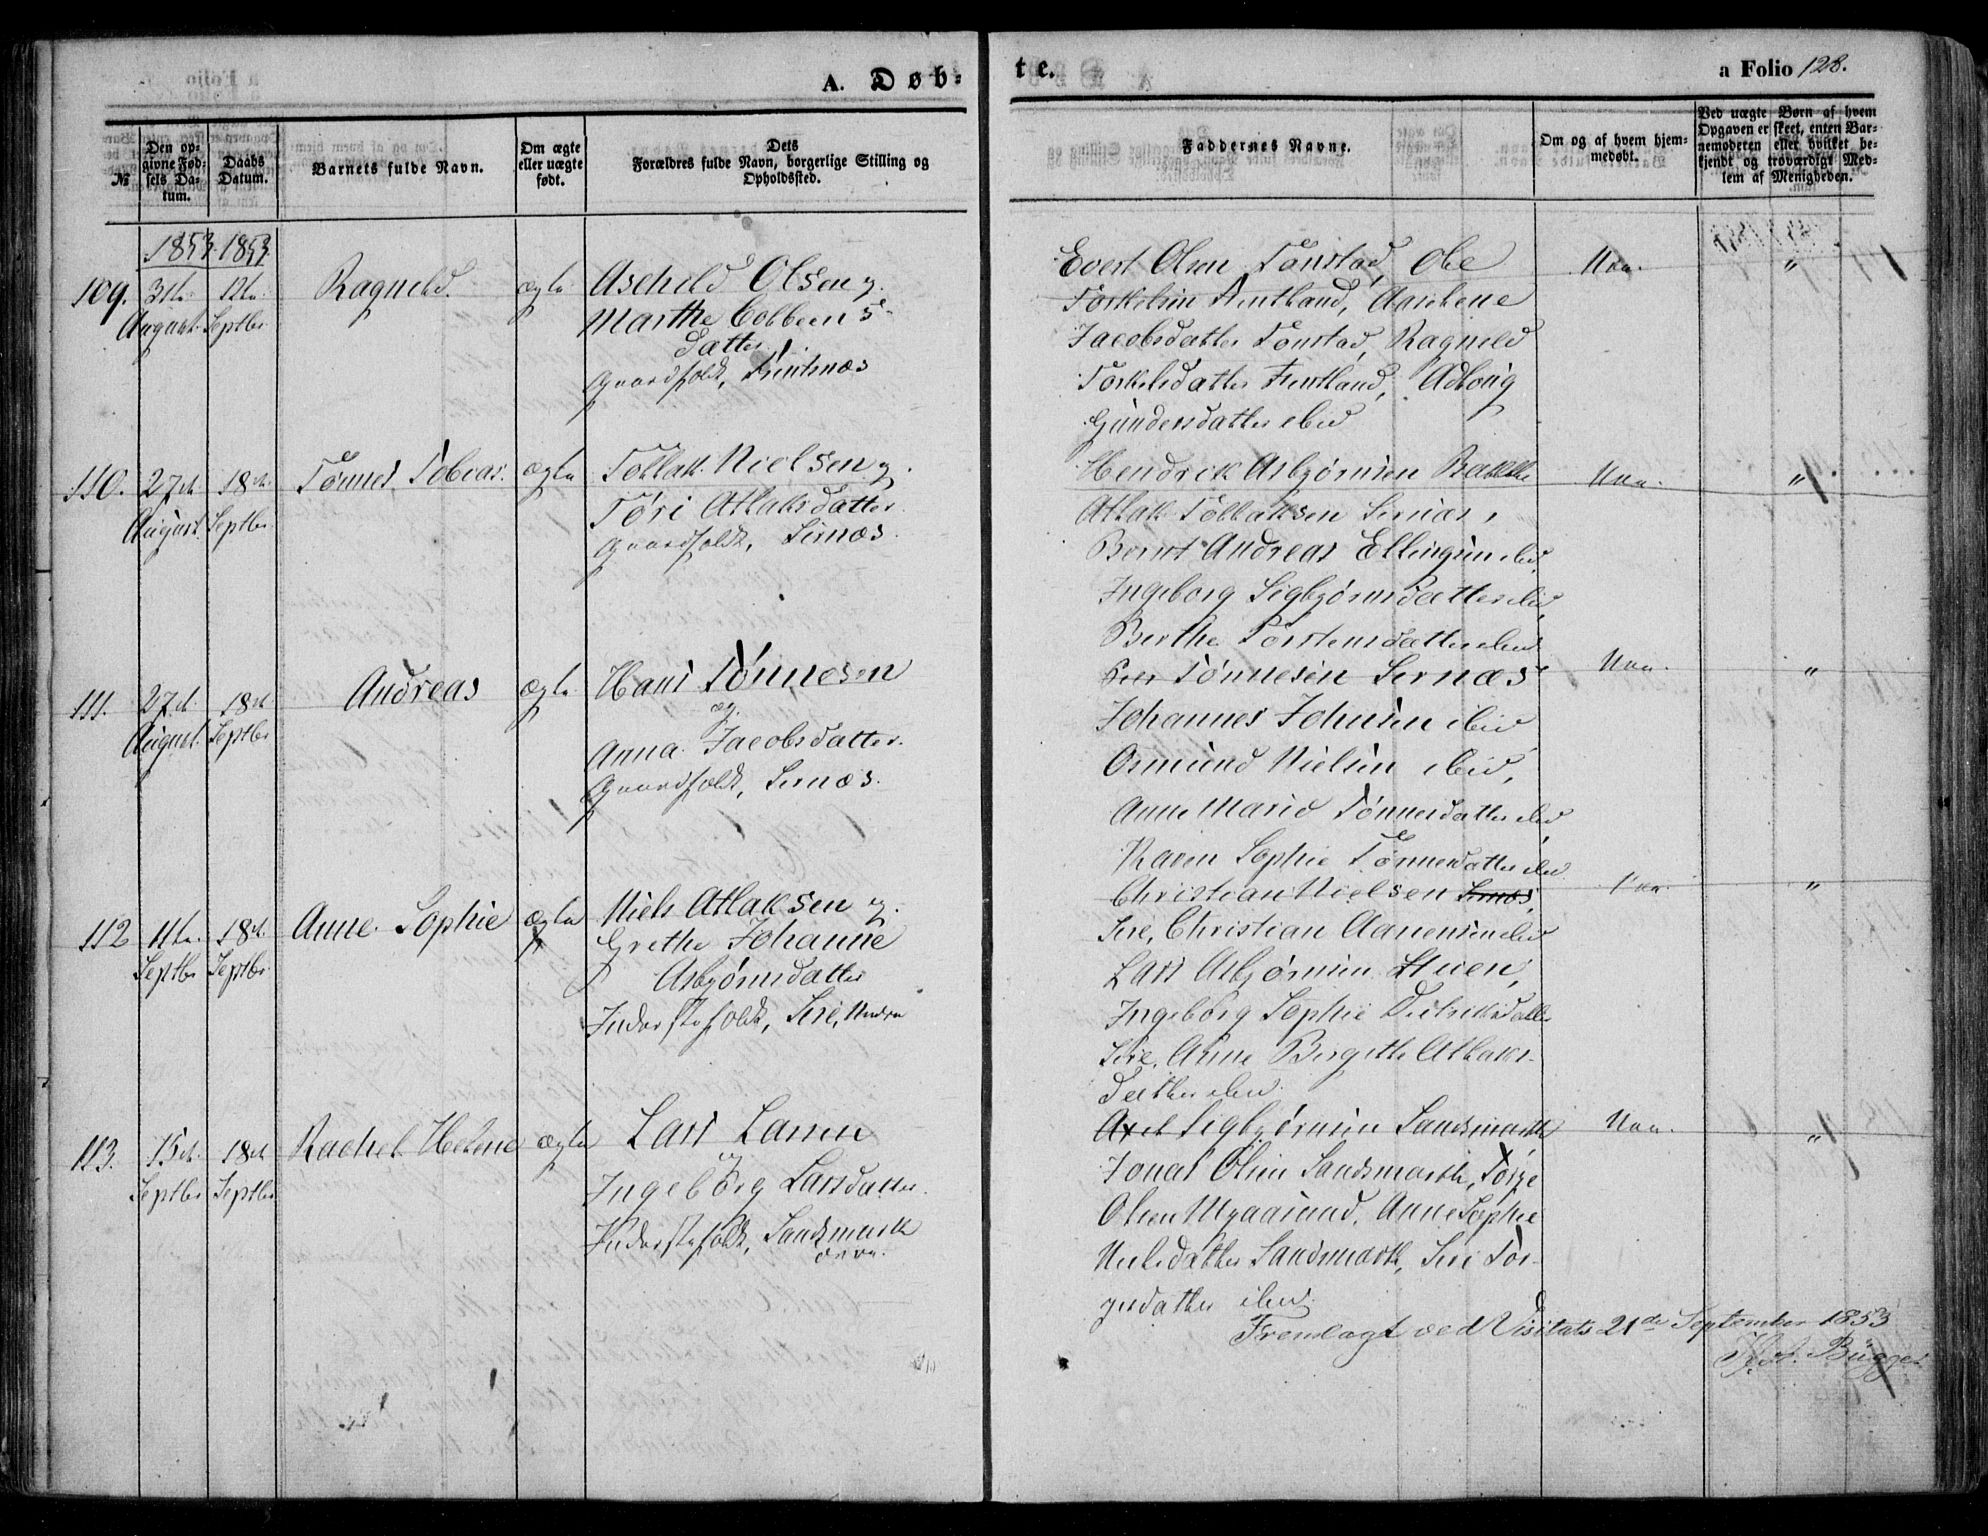 A. Døb=
te.
a Folio 128.
№
Den op-
givne Fød-
sels Da-
tum.
Daabs
Datum.
Barnets fulde Navn.
Om ægte
eller uægte
født.
Dets
Forældres fulde Navn, borgerlige Stilling og
Opholdssted.
Faddernes Navne.
Om og af hvem hjem-
medøbt.
Ved uægte Børn af hvem
Opgaven er skeet, enten Bar-
nemoderen eller hvilket be-
kjendt og troværdigt Med-
lem af Menigheden.
1853 1853
109. 3te 12te Ragneld. ægte Aschild Olsen og
August Septbr Marthe
datter
Gaardfolk, Fintnæs
Evert Olsen Tonstad, Ole Nei. "
Torkelsen Fintland,
Jacobsdatter Tonstad, Ragneld
Torkelsdatter Fintland,
Gundersdatter ibid
110. 27de 18de Tønnes Tobias. ægte Tollak Nielsen og
August Septbr Tori Atlaksdatter
Gaardfolk, Sirnæs.
Hendrick Asbjørnsen Bakke Nei. "
Atlak Tollaksen Sirnæs,
Bernt Andreas Ellingsen ibid
Ingeborg Sigbjørnsdatter ibid
Berthe Torstensdatter ibid
111. 27de 18de Andreas ægte Hans Tønnesen
August Septbr og
Anna Jacobsdatter.
Gaardfolk, Sirnæs.
Peer Tønnesen Sirnæs Nei. "
Johannes Johnsen ibid
Osmund Nielsen ibid,
Anne Marie Tønnesdatter ibid
Karen Sophie Tønnesdatter ibid
112 11te 18de Anne Sophie ægte Niels Atlaksen og
Septbr Septbr Grethe Johanne
Asbjørnsdatter
Inderstefolk, Sire, Nedre
Christian Nielsen Sirnæs, Nei. "
Sire, Christian Aanensen ibid
Lars Asbjørnsen Stuen,
Ingeborg Sophie Didriksdatter
Sire, Anne Birgitte Atlaks-
datter ibid
113. 15de 18de Rachel Helene ægte Lars Larsen
Septbr Septbr og
Ingeborg Larsdatter.
Inderstefolk, Sandsmark
øvre.
Axel Sigbjørnsen Sandsmark Nei. "
Jonas Olsen Sandsmark, Torge
Olsen Mgaasund, Anne Sophie
Nielsdatter Sandsmark, Siri Tor-
gersdatter ibid.
Fremlagt ved Visitats 21de September 1853
Bugge